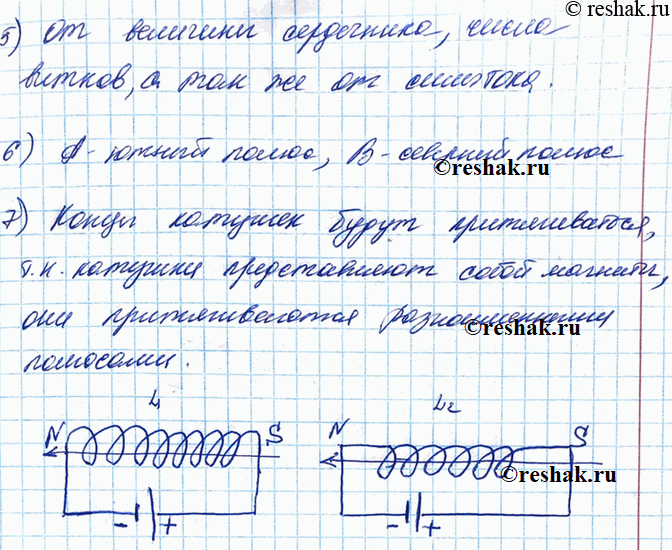 © reshak.ru
5) От величины сердечника, числа
витков, а так же от силы тока.
6) А - южный полюс, В - северный полюс
© reshak.ru
7) Концы катушек будут притягиваться,
т.к. катушки представляют собой магниты,
они притягиваются разноименными
© reshak.ru
полюсами.
L₁ L₂
N S N S
© reshak.ru
- + - +